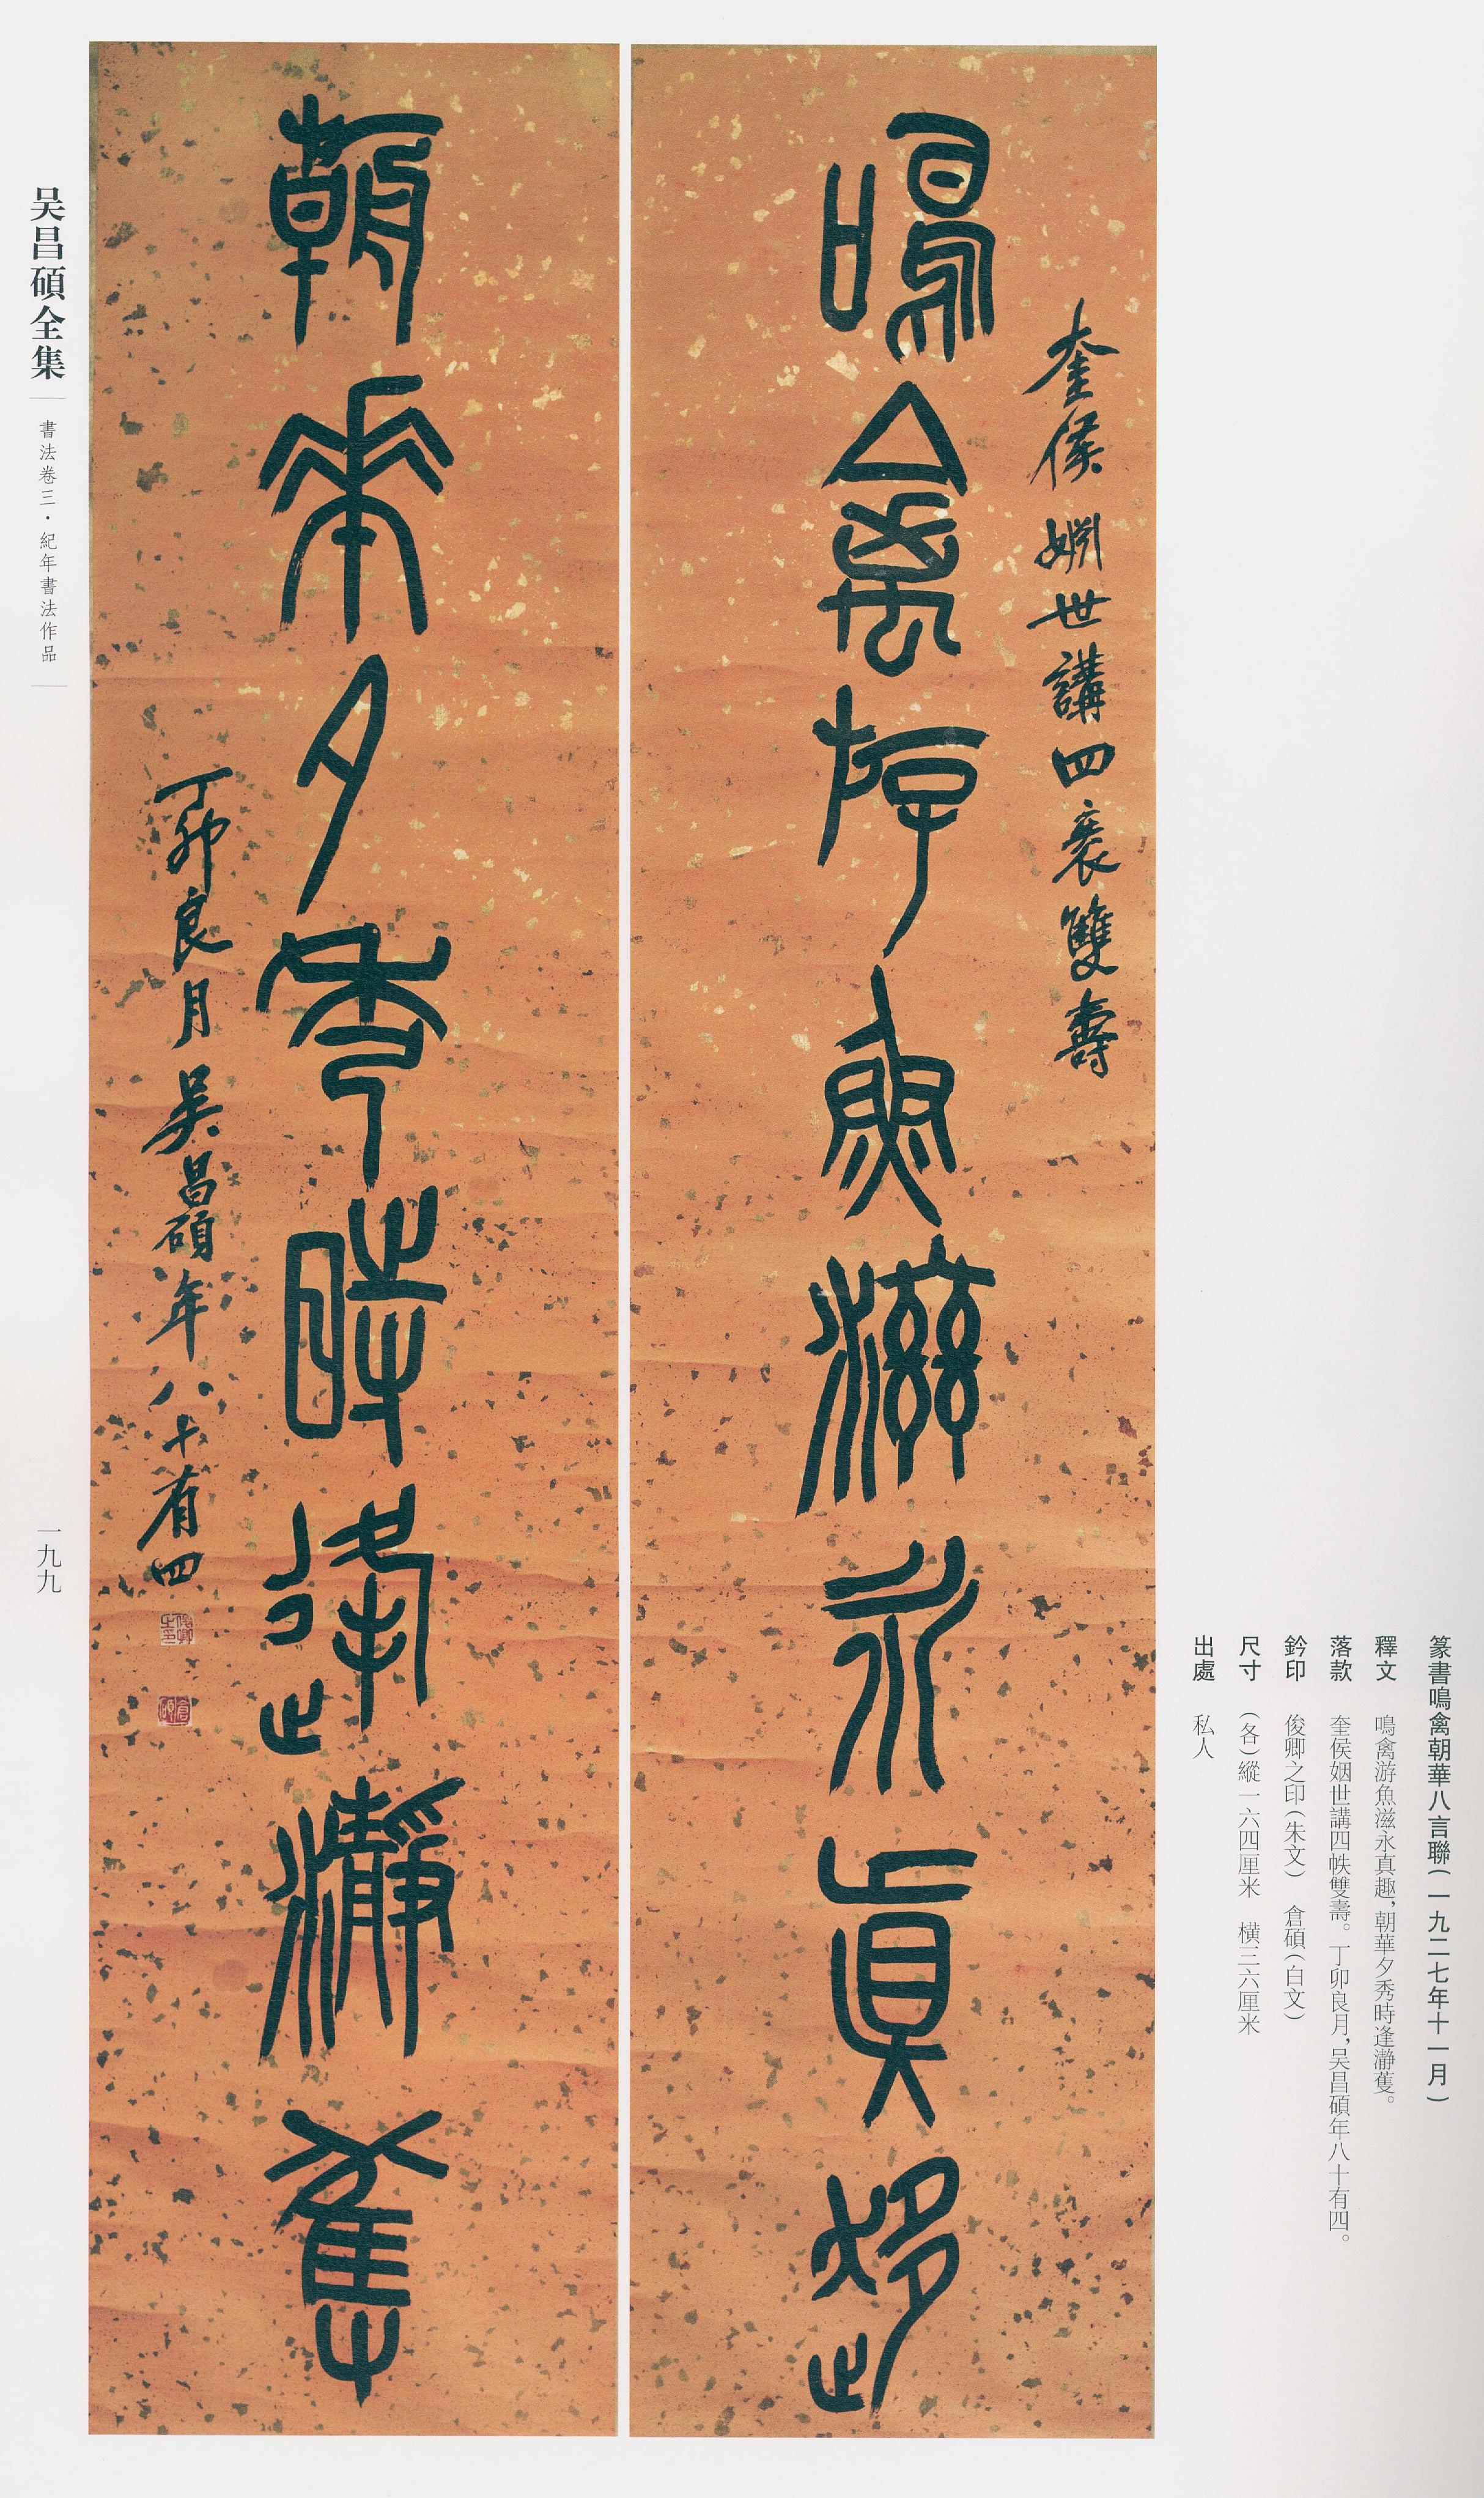 篆書鳴禽朝華八言聯（一九二七年十一月）
釋文　鳴禽游魚滋永真趣，朝華夕秀時逢瀞蒦。
落款　奎侯姻世講四帙雙壽。丁卯良月，吴昌碩年八十有四。
鈐印　俊卿之印（朱文）　倉碩（白文）
尺寸　（各）縱一六四厘米　橫三六厘米
出處　私人
奎侯姻世講四袠雙壽
鳴禽游魚滋永真趣
朝華夕秀時逢瀞蒦
丁卯良月吳昌碩年八十有四
俊卿之印
倉碩
吴昌碩全集
書法卷三·紀年書法作品
一九九